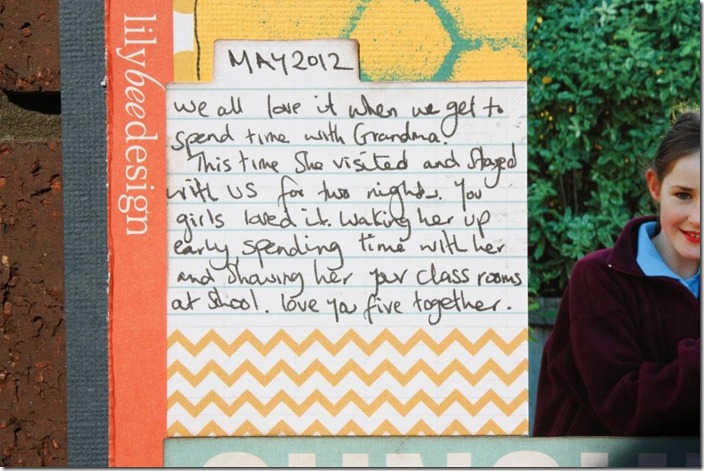 lilybeedesign
MAY 2012
We all love it when we get to
spend time with Grandma.
This time she visited and stayed
with us for two nights. You
girls loved it. Waking her up
early, spending time with her
and showing her your class rooms
at school. Love you five together.